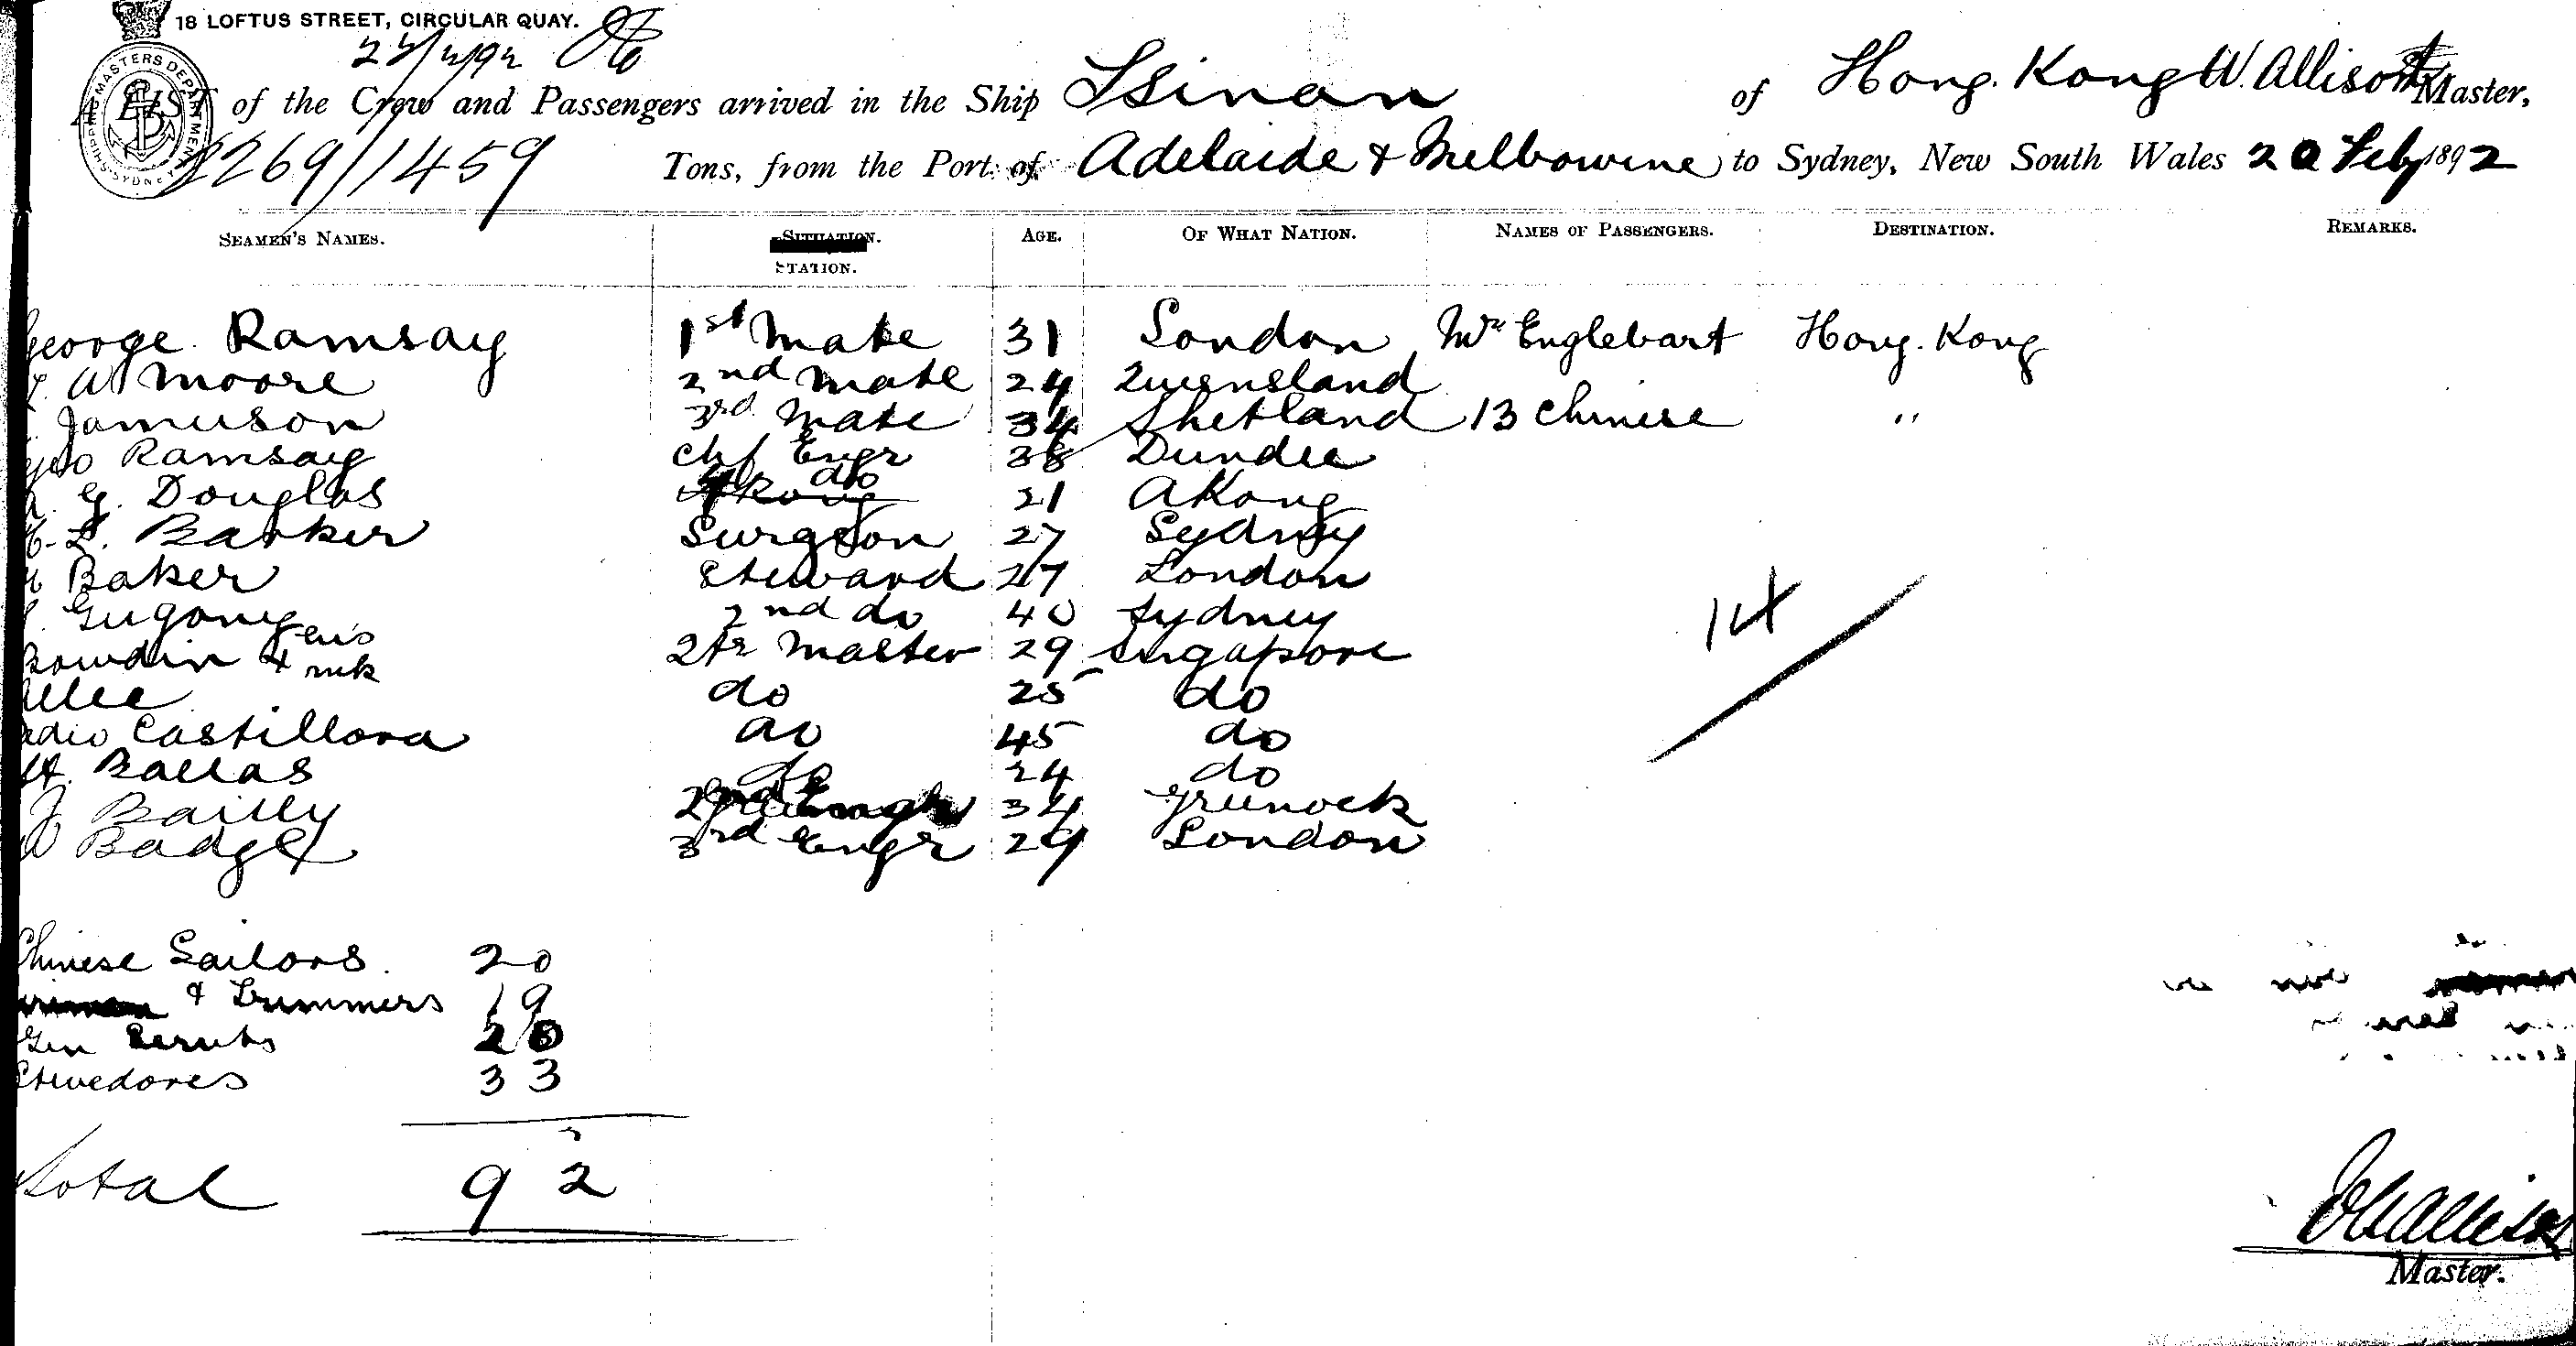 18 LOFTUS STREET, CIRCULAR QUAY.
SHIPPING MASTERS DEPARTMENT SYDNEY
A LIST of the Crew and Passengers arrived in the Ship Tsinan of Hong. Kong W. Allison Master,
2269/1459 Tons, from the Port of Adelaide & Melbourne to Sydney, New South Wales 20 Feby 1892
SEAMEN'S NAMES. SITUATION. STATION. AGE. OF WHAT NATION. NAMES OF PASSENGERS. DESTINATION. REMARKS.
George Ramsay 1st Mate 31 London Mr Englebart Hong. Kong
A Moore 2nd Mate 24 Queensland
Jamieson 3rd Mate 34 Shetland 13 Chinese "
Geo Ramsay Chf Engr 38 Dundee
G. Douglas do 21 AKong
L. Barker Surgeon 27 Sydney
Baker Steward 27 London
Gugong 2nd do 40 Sydney
Bowdin his + mk Qtr Master 29 Singapore
do 25 do
Castillora do 45 do
Ballas do 24 do
J Bailly 2nd Engr 34 Greenock
W Badge 3rd Engr 29 London
14
Chinese Sailors. 20
& Trimmers 19
20
Stevedores 33
Total 92
W Allison
Master.